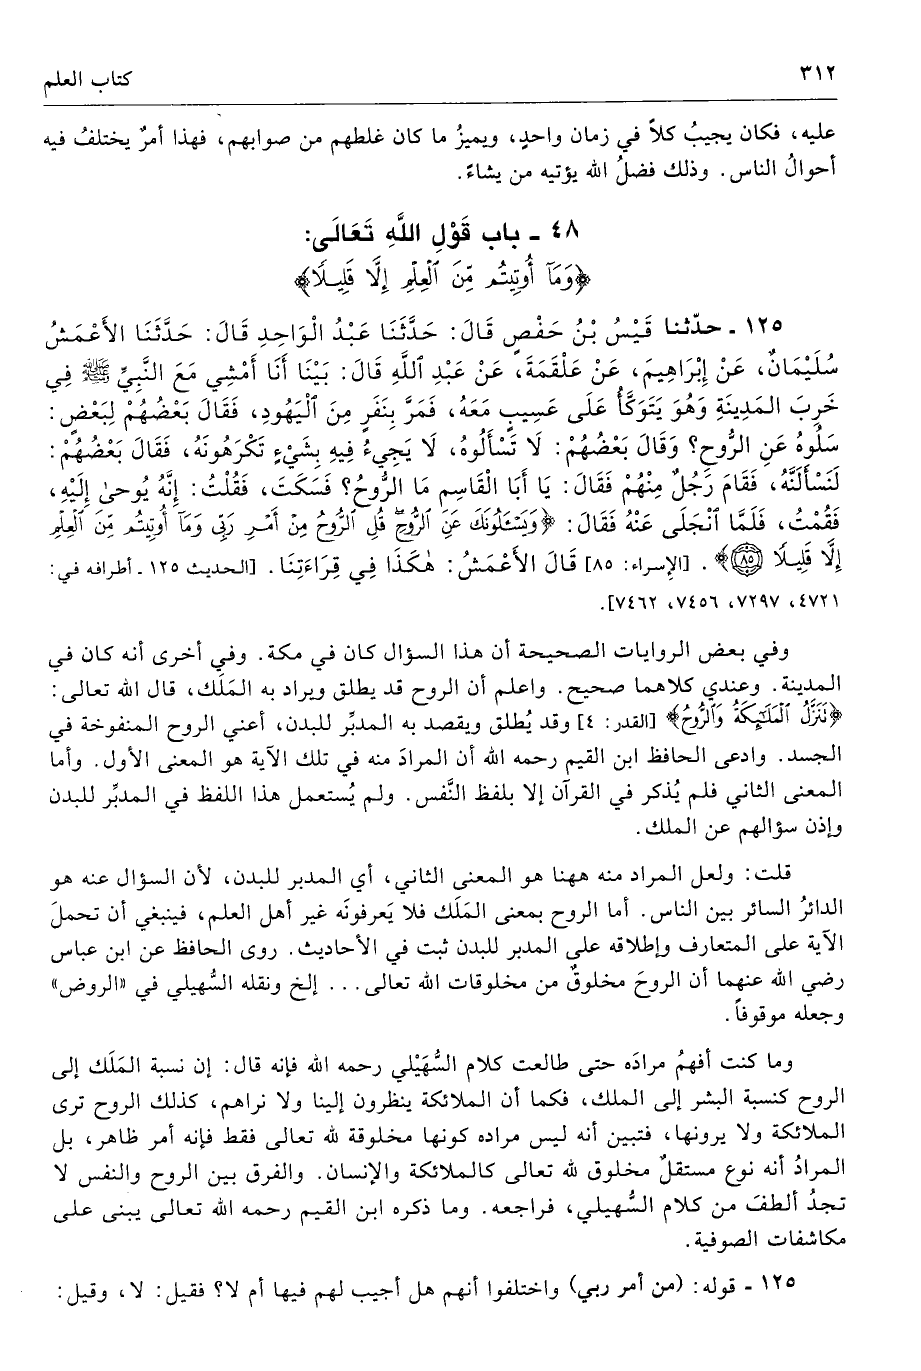 ٣١٢
كتاب العلم
عليه، فكان يجيبُ كلاً في زمان واحدٍ، ويميزُ ما كان غلطهم من صوابهم، فهذا أمرٌ يختلفُ فيه
أحوالُ الناس. وذلك فضلُ الله يؤتيه من يشاءً.
٤٨ ـ باب قَوْلِ اللَّهِ تَعَالَى:
﴿وَمَآ أُوتِيتُم مِّنَ ٱلْعِلْمِ إِلَّا قَلِيلًا﴾
١٢٥ ـ حدّثنا قَيْسُ بْنُ حَفْصٍ قَالَ: حَدَّثَنَا عَبْدُ الْوَاحِدِ قَالَ: حَدَّثَنَا الأَعْمَشُ
سُلَيْمَانُ، عَنْ إِبْرَاهِيمَ، عَنْ عَلْقَمَةَ، عَنْ عَبْدِ اللَّهِ قَالَ: بَيْنَا أَنَا أَمْشِي مَعَ النَّبِيِّ ﷺ فِي
خَرِبِ المَدِينَةِ وَهُوَ يَتَوَكَّأُ عَلَى عَسِيبٍ مَعَهُ، فَمَرَّ بِنَفَرٍ مِنَ الْيَهُودِ، فَقَالَ بَعْضُهُمْ لِبَعْضٍ:
سَلُوهُ عَنِ الرُّوحِ؟ وَقَالَ بَعْضُهُمْ: لَا تَسْأَلُوهُ، لَا يَجِيءُ فِيهِ بِشَيْءٍ تَكْرَهُونَهُ، فَقَالَ بَعْضُهُمْ:
لَنَسْأَلَنَّهُ، فَقَامَ رَجُلٌ مِنْهُمْ فَقَالَ: يَا أَبَا الْقَاسِمِ مَا الرُّوحُ؟ فَسَكَتَ، فَقُلْتُ: إِنَّهُ يُوحىٰ إِلَيْهِ،
فَقُمْتُ، فَلَمَّا انْجَلَى عَنْهُ فَقَالَ: ﴿وَيَسْـَٔلُونَكَ عَنِ ٱلرُّوحِ ۖ قُلِ ٱلرُّوحُ مِنْ أَمْرِ رَبِّى وَمَآ أُوتِيتُم مِّنَ ٱلْعِلْمِ
إِلَّا قَلِيلًا ٨٥﴾. [الإسراء: ٨٥] قَالَ الأَعْمَشُ: هٰكَذَا فِي قِرَاءَتِنَا. [الحديث ١٢٥ ـ أطرافه في:
٤٧٢١، ٧٢٩٧، ٧٤٥٦، ٧٤٦٢].
وفي بعض الروايات الصحيحة أن هذا السؤال كان في مكة. وفي أخرى أنه كان في
المدينة. وعندي كلاهما صحيح. واعلم أن الروح قد يطلق ويراد به المَلَك، قال الله تعالى:
﴿نَنَزَّلُ ٱلْمَلَـٰٓئِكَةُ وَٱلرُّوحُ﴾ [القدر: ٤] وقد يُطلق ويقصد به المدبِّر للبدن، أعني الروح المنفوخة في
الجسد. وادعى الحافظ ابن القيم رحمه الله أن المرادَ منه في تلك الآية هو المعنى الأول. وأما
المعنى الثاني فلم يُذكر في القرآن إلا بلفظ النَّفس. ولم يُستعمل هذا اللفظ في المدبِّر للبدن
وإذن سؤالهم عن الملك.
قلت: ولعل المراد منه ههنا هو المعنى الثاني، أي المدبر للبدن، لأن السؤال عنه هو
الدائرُ السائر بين الناس. أما الروح بمعنى المَلَك فلا يَعرفونَه غير أهل العلم، فينبغي أن تحملَ
الآية على المتعارف وإطلاقه على المدبر للبدن ثبت في الأحاديث. روى الحافظ عن ابن عباس
رضي الله عنهما أن الروحَ مخلوقٌ من مخلوقات الله تعالى... إلخ ونقله السُّهيلي في «الروض»
وجعله موقوفاً.
وما كنت أفهمُ مرادَه حتى طالعت كلام السُّهَيْلي رحمه الله فإنه قال: إن نسبة المَلَك إلى
الروح كنسبة البشر إلى الملك، فكما أن الملائكة ينظرون إلينا ولا نراهم، كذلك الروح ترى
الملائكة ولا يرونها، فتبين أنه ليس مراده كونها مخلوقة لله تعالى فقط فإنه أمر ظاهر، بل
المرادُ أنه نوع مستقلٌ مخلوق لله تعالى كالملائكة والإنسان. والفرق بين الروح والنفس لا
تجدُ ألطفَ من كلام السُّهيلي، فراجعه. وما ذكره ابن القيم رحمه الله تعالى يبنى على
مكاشفات الصوفية.
١٢٥ ـ قوله: (من أمر ربي) واختلفوا أنهم هل أجيب لهم فيها أم لا؟ فقيل: لا، وقيل: